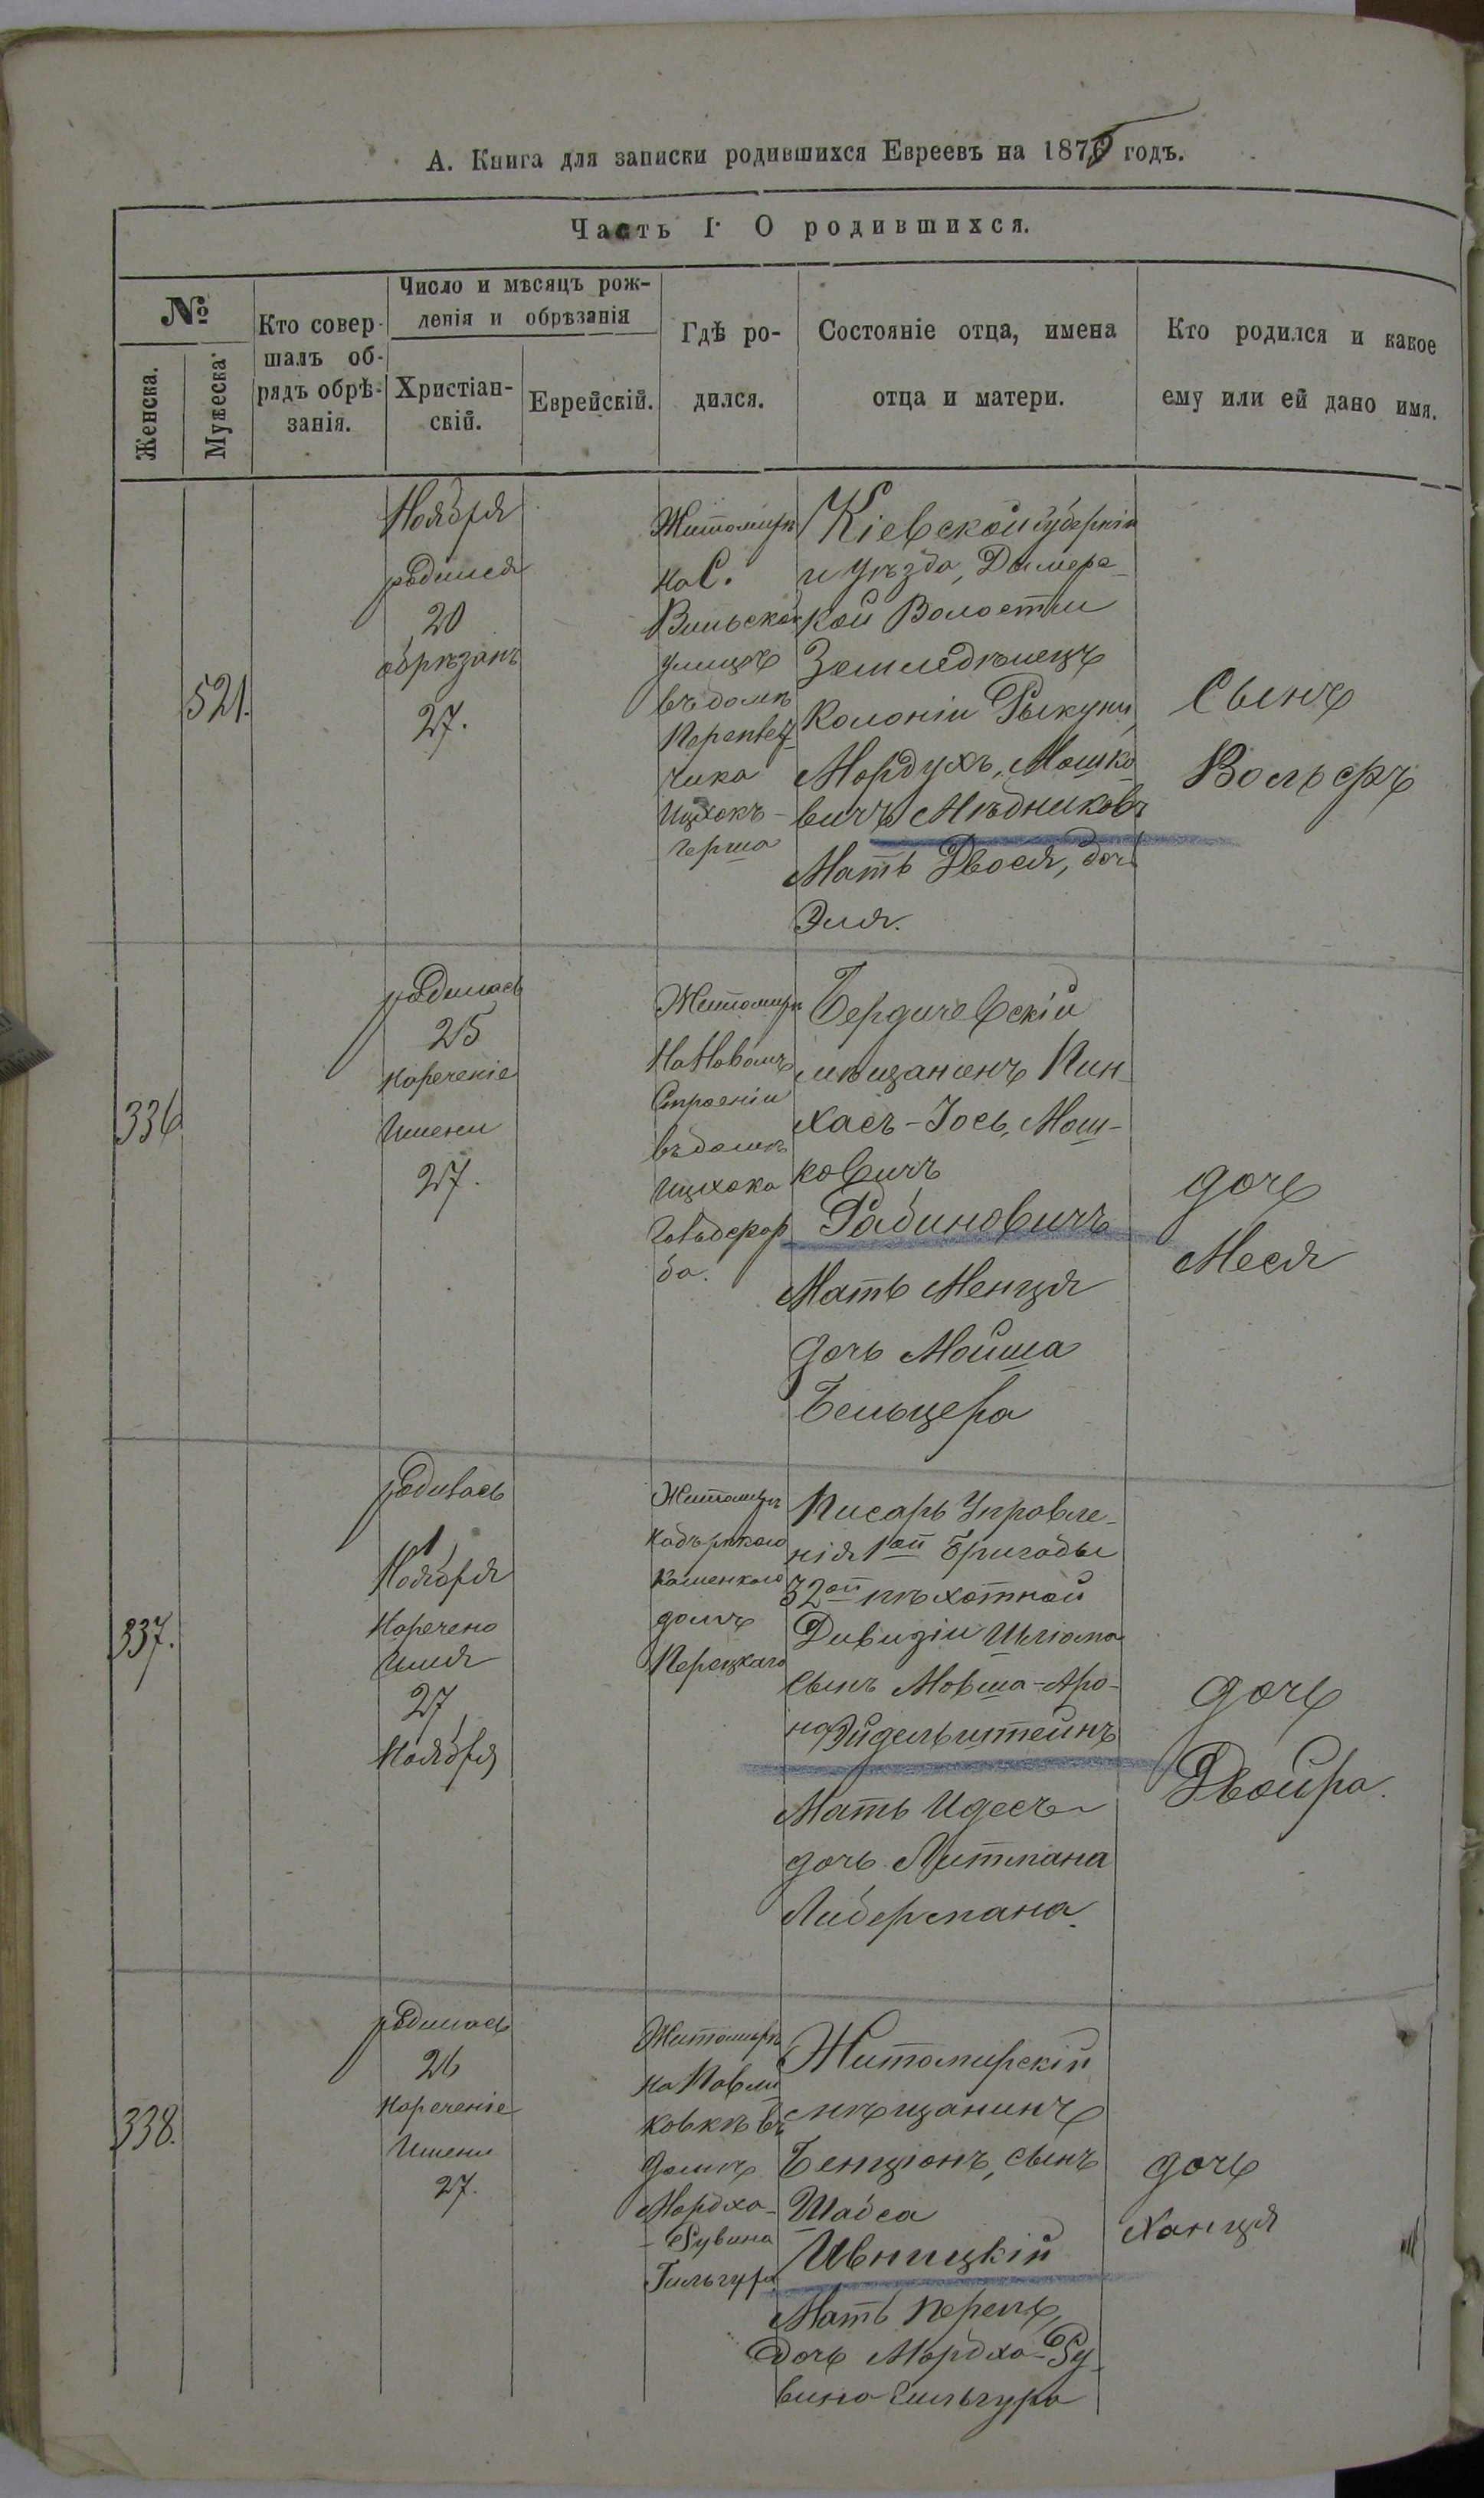 А. Книга для записки родившихся Евреевъ на 1876 годъ.
Часть I О родившихся.
№
Женска.
Мужеска
Кто совер-
шалъ об-
рядъ обрѣ-
занія.
Число и мѣсяцъ рож-
денія и обрѣзанія
Христіан-
скій.
Еврейскій.
Гдѣ ро-
дился.
Состояніе отца, имена
отца и матери.
Кто родился и какое
ему или ей дано имя.
521.
Ноября
родился
20
обрѣзанъ
27.
Житомирѣ
на С.
Вильской
улицѣ
въ домѣ
чика
Ицхокъ-
герша
Кіевской губерніи
и уѣзда, Димерс-
кой Волости
Земледѣлецъ
Колоніи Рыкуни,
Мордухъ, Мошко-
вичъ Мѣдниковъ
Мать Двося, дочь
Эля.
Сынъ
Вольфъ
336
родилась
25
нареченіе
имени
27.
Житомирѣ
на Новомъ
Строеніи
въ домѣ
Ицхока
Гольдфар
ба.
Бердичевскій
мѣщанинъ Пин-
хасъ-Іось, Мош-
ковичъ
Рабиновичъ
Мать Менця
дочь Мойша
Бельцера
дочь
Меся
337.
родилась
1
Ноября
Наречено
имя
27
Ноября
Житомирѣ
домѣ
Перецкаго
Писарь Управле-
нія 1ой Бригады
32ой пѣхотной
Дивизіи Шліома
Сынъ Мовша-Аро-
на Эйдельштейнъ
Мать Идесъ
дочь Литмана
Либермана.
дочь
Двойра.
338.
родилась
26
нареченіе
имени
27.
Житомирѣ
на Павли
ковкѣ въ
домѣ
Мордха-
-Рувина
Гильгура
Житомирскій
мѣщанинъ
Бенціонъ, сынъ
Шабса
Ивницкій
Мать Перель,
дочь Мордха-Ру-
вина Гильгура
дочь
Ханця